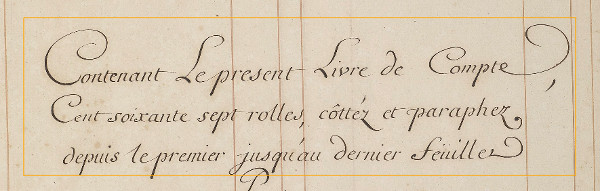 Contenant Le present Livre de Compte,
Cent soixante sept rolles, côttéz et paraphez,
depuis le premier jusqu'au dernier feüillet